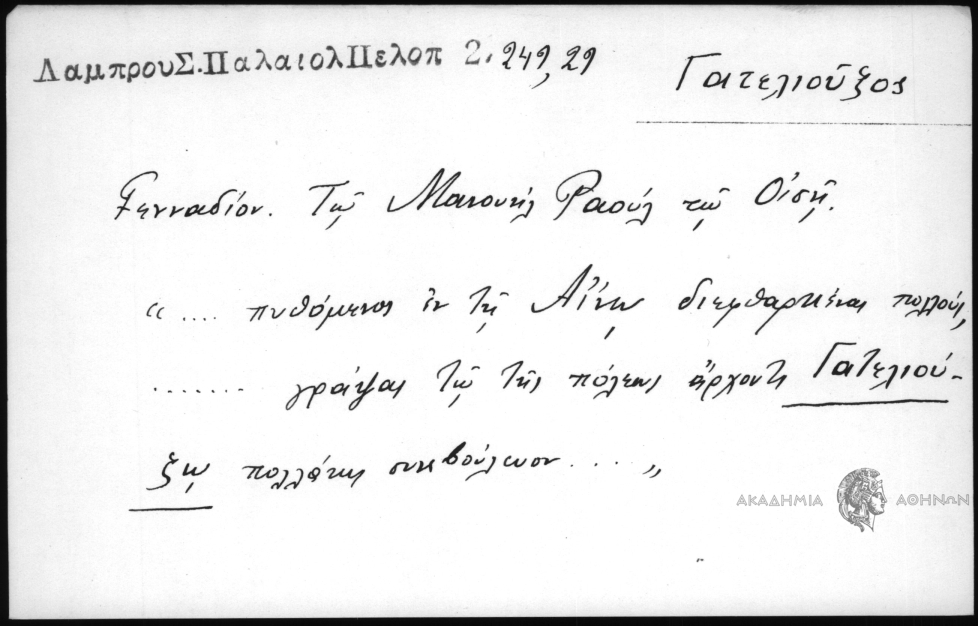 ΛαμπρουΣ.ΠαλαιολΠελοπ 2. 249, 29
Γατελιοῦξος
Γενναδίου. Τῷ Μανουὴλ Ραοὺλ τῷ Οἰσῇ.
" .... πυθόμενος ἐν τῇ Αἴνῳ διεφθαρκέναι πολλούς,
........ γράψας τῷ τῆς πόλεως ἄρχοντι Γατελιού-
ξῳ πολλάκις συνεβούλευον .... "
ΑΚΑΔΗΜΙΑ ΑΘΗΝΩΝ